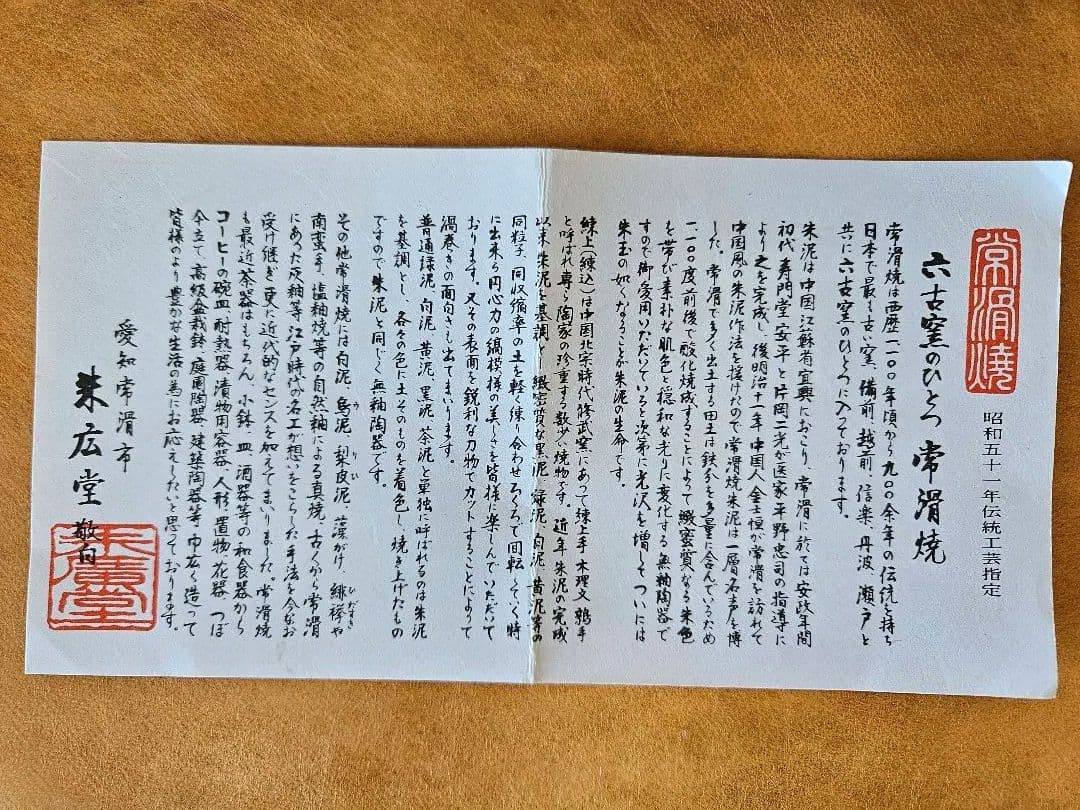 常滑燒
昭和五十一年伝統工芸指定
六古窯のひとつ 常滑焼
常滑焼は西歴一一〇〇年頃から九〇〇余年の伝統を持ち
日本で最も古い窯、備前、越前、信楽、丹波、瀬戸と
共に六古窯のひとつに入っております。
朱泥は中国江蘇省宜興におこり、常滑に於ては安政年間
初代寿門堂安平と片岡二光が医家平野忠司の指導に
より之を完成し、後明治十一年中国人金士恒が常滑を訪れて
中国風の朱泥作法を授けたので常滑焼朱泥は一層名声を博
した。常滑で多く出土する田土は鉄分を多量に含んでいるため
一一〇〇度前後で酸化焼成することによって緻蜜質なる朱色
を帯び素朴な肌色と穏和な光りに変化する無釉陶器で
すので御愛用いただいていると次第に光沢を増しそしてついには
朱玉の如くなることが朱泥の生命です。
練上(練込)は中国北宗時代修武窯にあって練上手 木理文 鶉手
と呼ばれ専ら陶家の珍重する数少い焼物です。近年朱泥の完成
以来朱泥を基調とし緻密質な黒泥、緑泥、白泥、黄泥等の
同粒子、同収縮率の土を軽く練り合わせろくろで回転しそく時
に出来る円心力の縞模様の美しさを皆様に楽しんでいただいて
おります。又その表面を鋭利な刃物でカットすることによって
渦巻きの面白さも出てまいります。
普通緑泥、白泥、黄泥、黒泥、茶泥と単独に呼ばれるのは朱泥
を基調とし、各々の色に土そのものを着色し、焼き上げたもの
ですので朱泥と同じく無釉陶器です。
その他常滑焼には白泥、烏泥、梨皮泥、藻がけ、緋襷や
南蛮手、塩釉焼等の自然釉による真焼、古くから常滑
にあった灰釉等江戸時代の名工が想いをこらした手法を今なお
受け継ぎ更に近代的なセンスを加えてまいりました。常滑焼
も最近茶器はもちろん、小鉢、皿、酒器等の和食器から
コーヒーの碗皿、耐熱器、漬物用容器、人形、置物、花器、つぼ
傘立て、高級盆栽鉢、庭園陶器、建築陶器等巾広く造って
皆様のより豊かな生活の為にお応えしたいと思っております。
愛知常滑市
朱広堂 敬白
朱廣堂